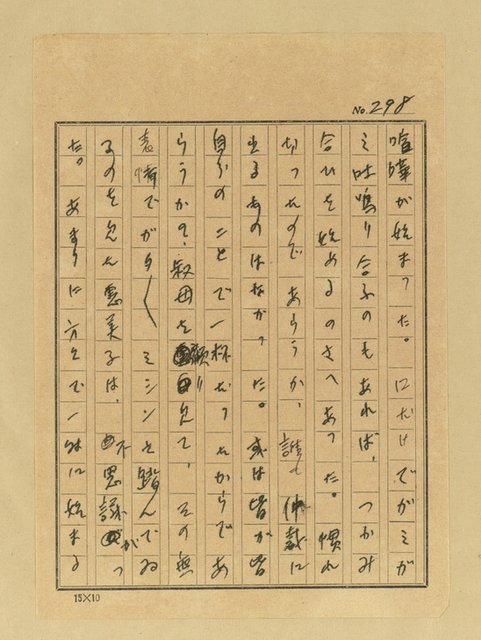 No. 298
喧嘩が始まった。口だけでがミが
ミ吐鳴り合ふのもあれば、つかみ
合ひを始めるのさへあった。慣れ
切ったのであらうか、誰も仲裁に
出るものはなかった。或は皆が皆
自分のことで一杯だったからであ
らうかで、叔母を顧り見て、その無
表情でがた〱ミシンを踏んでゐ
るのを見た恵美子は、不思議がっ
た。あまりに方々で一時に始まる
15×10